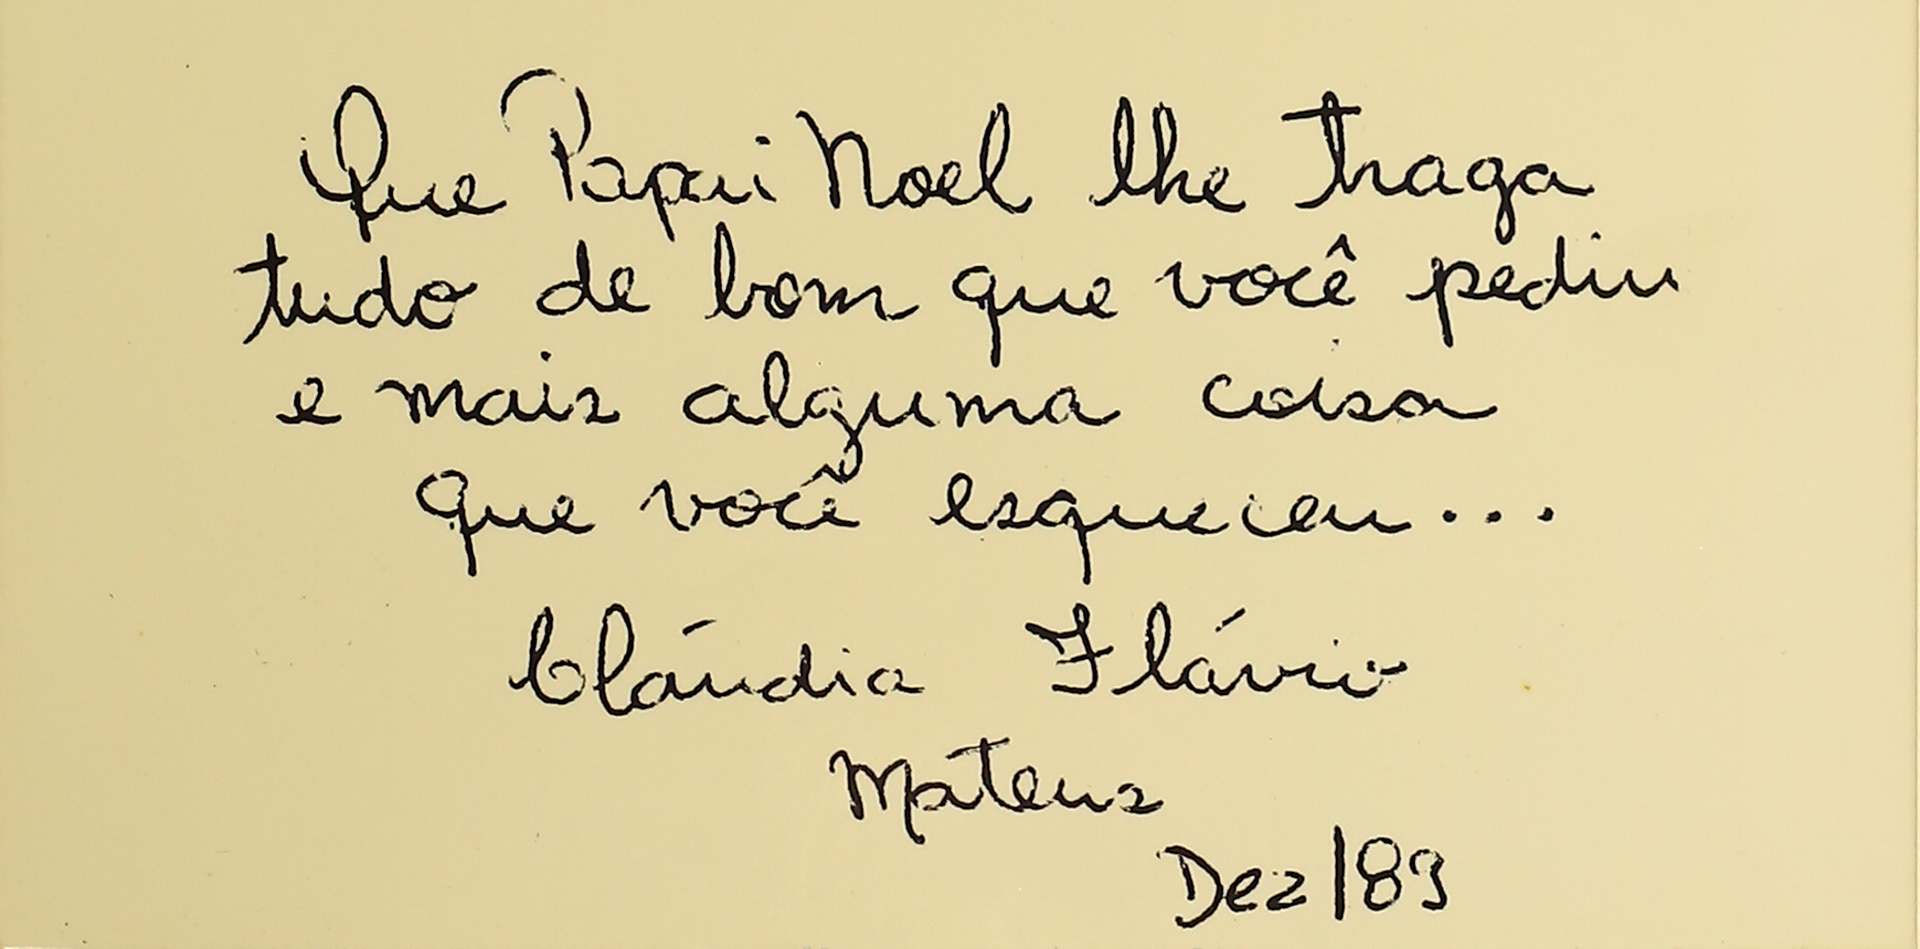 Que Papai Noel lhe traga
tudo de bom que você pediu
e mais alguma coisa
que você esqueceu...
Cláudia Flávio
Mateus
Dez/83